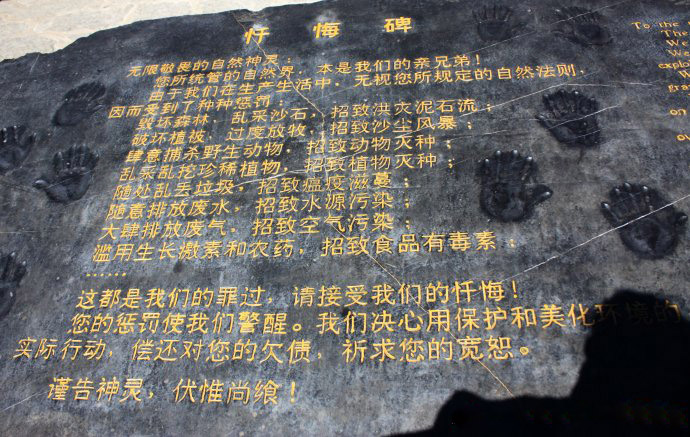 忏悔碑
无限敬畏的自然神灵：
您所统管的自然界，本是我们的亲兄弟！
由于我们在生产生活中，无视您所规定的自然法则，
因而受到了种种惩罚：
毁坏森林，乱采沙石，招致洪灾泥石流；
破坏植被，过度放牧，招致沙尘风暴；
肆意捕杀野生动物，招致动物灭种；
乱采乱挖珍稀植物，招致植物灭种；
随处乱丢垃圾，招致瘟疫滋蔓；
随意排放废水，招致水源污染；
大肆排放废气，招致空气污染；
滥用生长激素和农药，招致食品有毒素；
……
这都是我们的罪过，请接受我们的忏悔！
您的惩罚使我们警醒。我们决心用保护和美化环境的
实际行动，偿还对您的欠债，祈求您的宽恕。
谨告神灵，伏惟尚飨！
To the
The
We
We
explo
We
gra
on